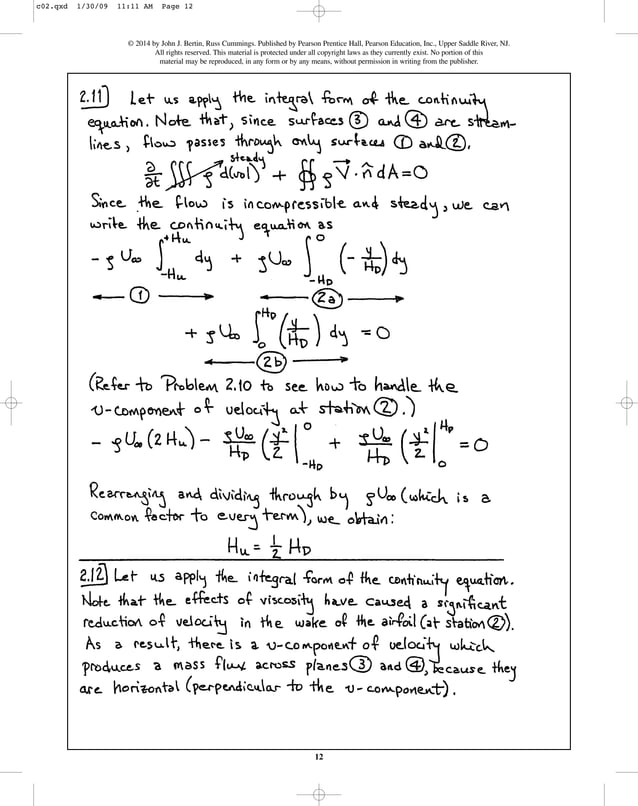 c02.qxd 1/30/09 11:11 AM Page 12
© 2014 by John J. Bertin, Russ Cummings. Published by Pearson Prentice Hall, Pearson Education, Inc., Upper Saddle River, NJ.
All rights reserved. This material is protected under all copyright laws as they currently exist. No portion of this
material may be reproduced, in any form or by any means, without permission in writing from the publisher.
2.11] Let us apply the integral form of the continuity
equation. Note that, since surfaces ③ and ④ are stream-
lines, flow passes through only surfaces ① and ②.
∂/∂t ∭ ρ d(vol) steady + ∯ ρ V⃗ · n̂ dA = 0
Since the flow is incompressible and steady, we can
write the continuity equation as
- ρU∞ ∫_{-Hu}^{+Hu} dy + ρU∞ ∫_{-HD}^{0} (- y/HD) dy
① 2a
+ ρU∞ ∫_0^{HD} (y/HD) dy = 0
2b
(Refer to Problem 2.10 to see how to handle the
v-component of velocity at station ②.)
- ρU∞ (2Hu) - ρU∞/HD (y²/2 |_{-HD}^{0} + ρU∞/HD (y²/2 |_0^{HD} = 0
Rearranging and dividing through by ρU∞ (which is a
common factor to every term), we obtain:
Hu = 1/2 HD
2.12] Let us apply the integral form of the continuity equation.
Note that the effects of viscosity have caused a significant
reduction of velocity in the wake of the airfoil (at station ②).
As a result, there is a v-component of velocity which
produces a mass flux across planes ③ and ④, because they
are horizontal (perpendicular to the v-component).
12